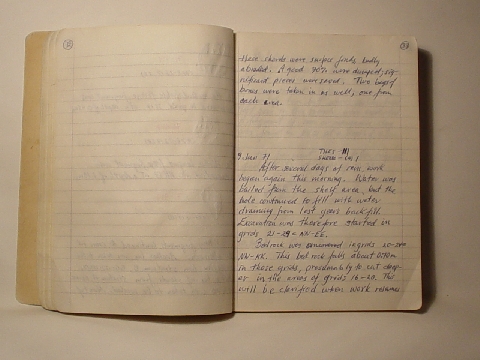 these sherds were surface finds, badly
abraded. A good 90% were dumped; sig-
nificant pieces were saved. Two bags of
bones were taken in as well, one from
each area.
9. Jun 71
After several days of sea work
began again this morning. Water was
bailed from the shelf area, but the
hole continued to fill with water
draining from last years backfill.
Excavation was therefore started in
grids 21-29 = NN-EE.
Bedrock was uncovered in grids 20-
NN-KK. This bedrock falls about 0.40m
in these grids, presumably to cut deep-
er in the areas of grids 16-20. This
will be clarified when work resumes